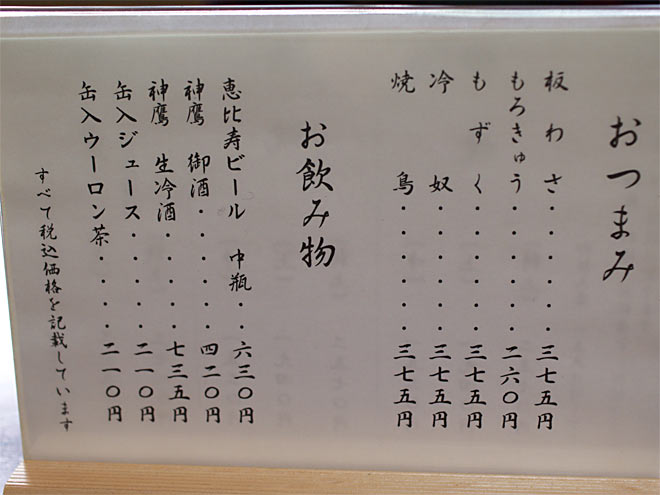 おつまみ
板わさ・・・・・三七五円
もろきゅう・・・・・二六〇円
もずく・・・・・三七五円
冷奴・・・・・三七五円
焼鳥・・・・・三七五円
お飲み物
恵比寿ビール 中瓶・・六三〇円
神鷹 御酒・・・・・四二〇円
神鷹 生冷酒・・・・七三五円
缶入ジュース・・・・・二一〇円
缶入ウーロン茶・・・・二一〇円
すべて税込価格を記載しています